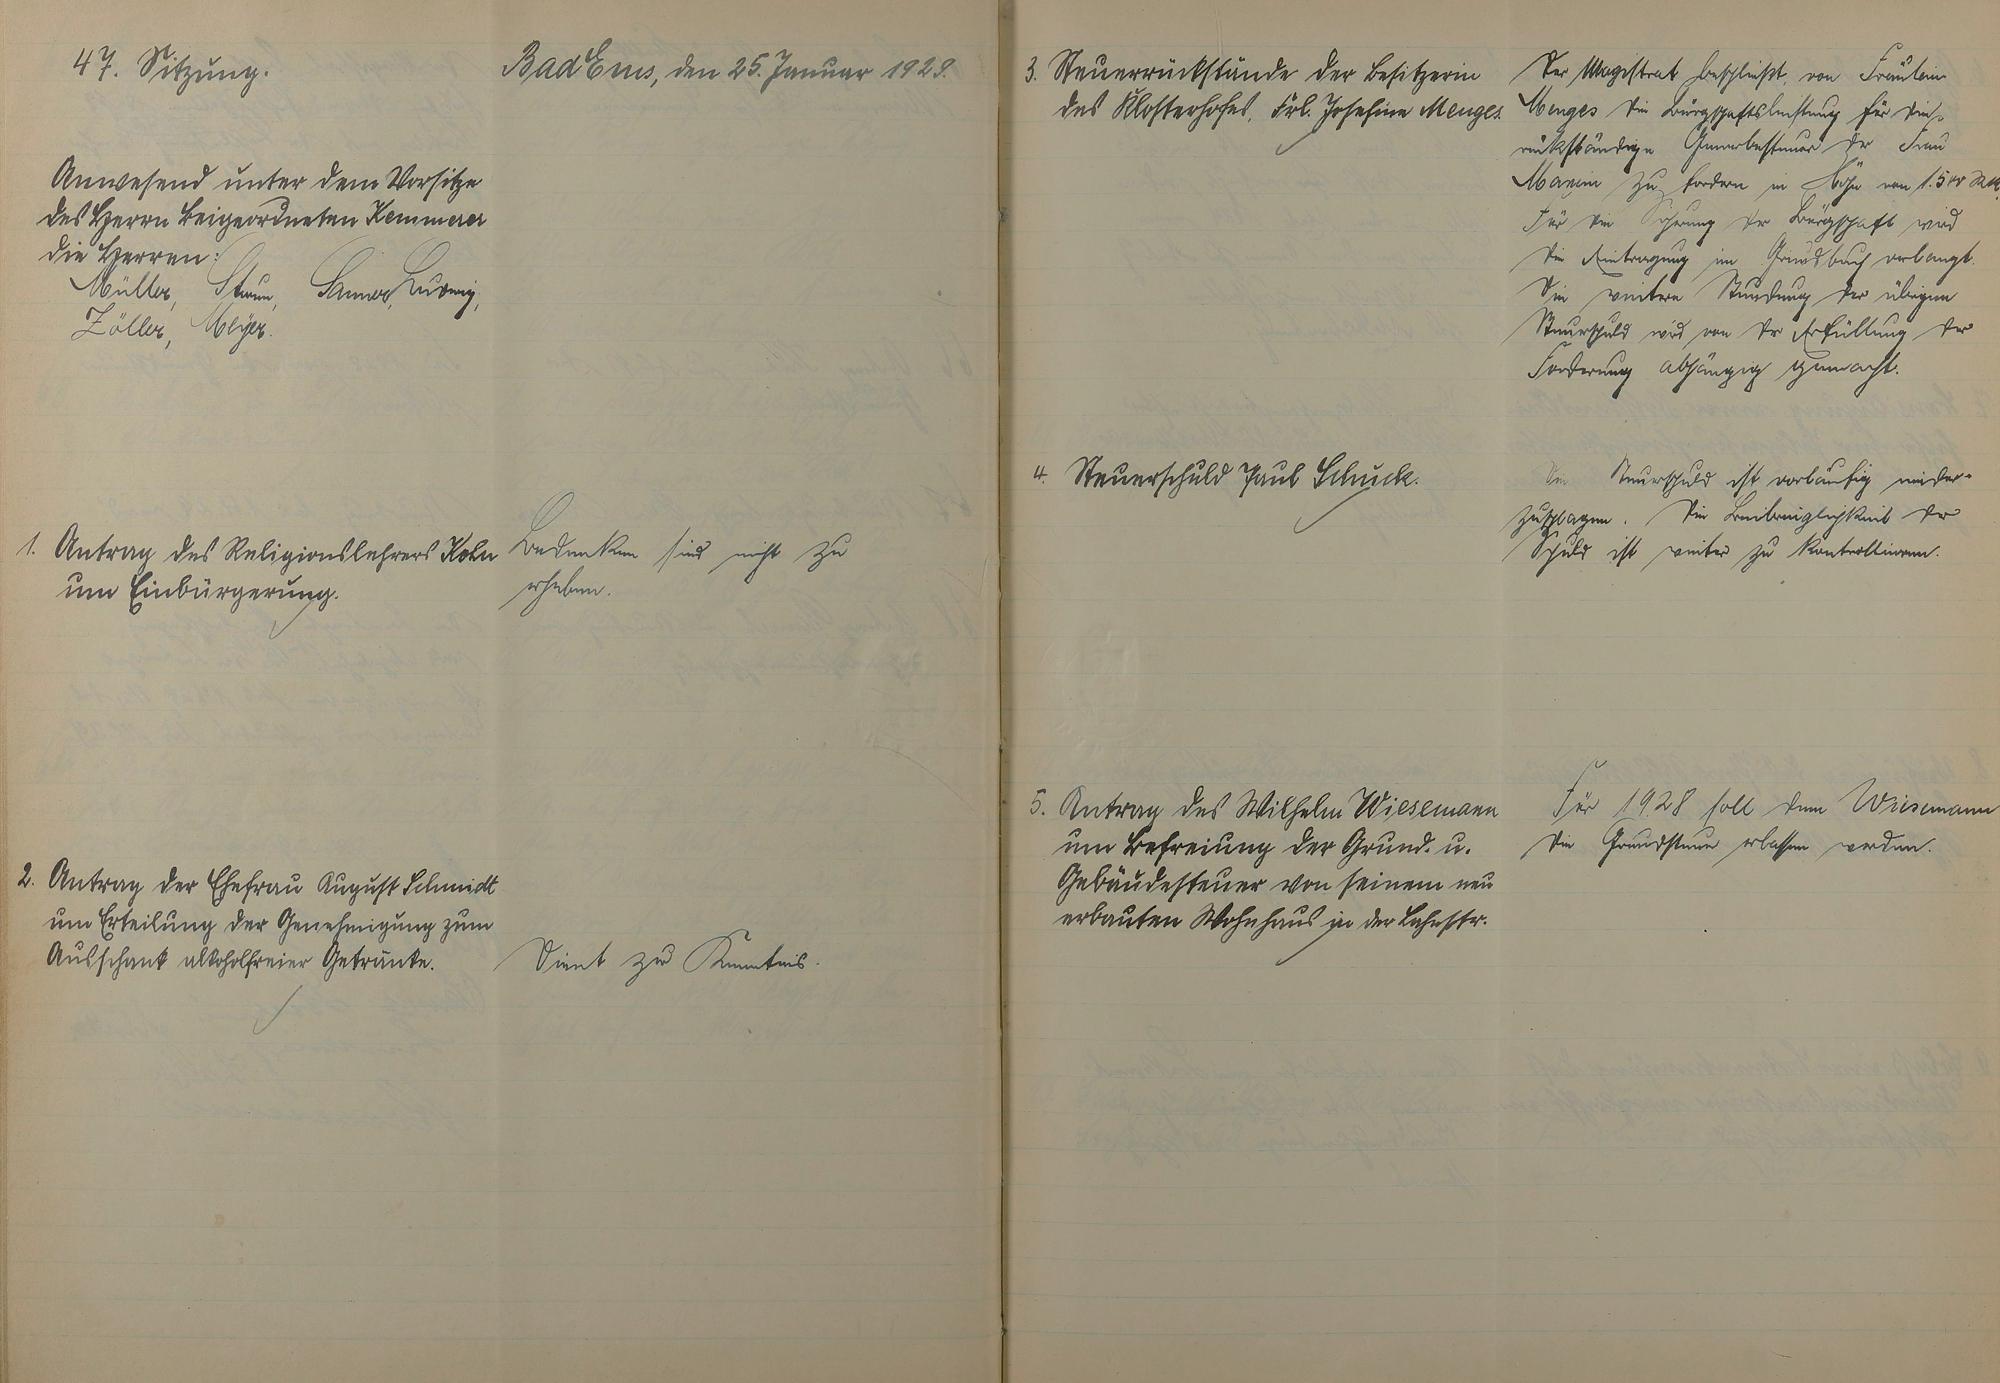 47. Sitzung.
Bad Ems, den 25. Januar 1929.
Anwesend unter dem Vorsitze
des Herrn Beigeordneten Kemmerer
die Herren:
Müller, Sanner, Ludwig,
Zöller, Meyer.
1. Antrag des Religionslehrers Kohn
um Einbürgerung.
Bedenken sind nicht zu
erheben.
2. Antrag der Ehefrau August Schmidt
um Erteilung der Genehmigung zum
Ausschank alkoholfreier Getränke.
Dient zur Kenntnis.
3. Steuerrückstände der Besitzerin
des Klosterhofes, Frl. Josefine Menges.
Der Magistrat beschließt, von Fräulein
Menges die Bürgschaftsleistung für die
rückständige Gewerbesteuer der Frau
zu fordern in Höhe von 1.500 RM.
Für die Sicherung der Bürgschaft wird
die Eintragung im Grundbuch verlangt.
Die weitere Stundung der übrigen
Steuerschuld wird von der Erfüllung der
Forderung abhängig gemacht.
4. Steuerschuld Paul Schuck.
Die Steuerschuld ist vorläufig nieder-
zuschlagen. Die Beibringlichkeit der
Schuld ist weiter zu kontrollieren.
5. Antrag des Wilhelm Wiesemann
um Befreiung der Grund- u.
Gebäudesteuer von seinem neu
erbauten Wohnhaus in der Lahnstr.
Für 1928 soll dem Wiesemann
die Grundsteuer erlassen werden.